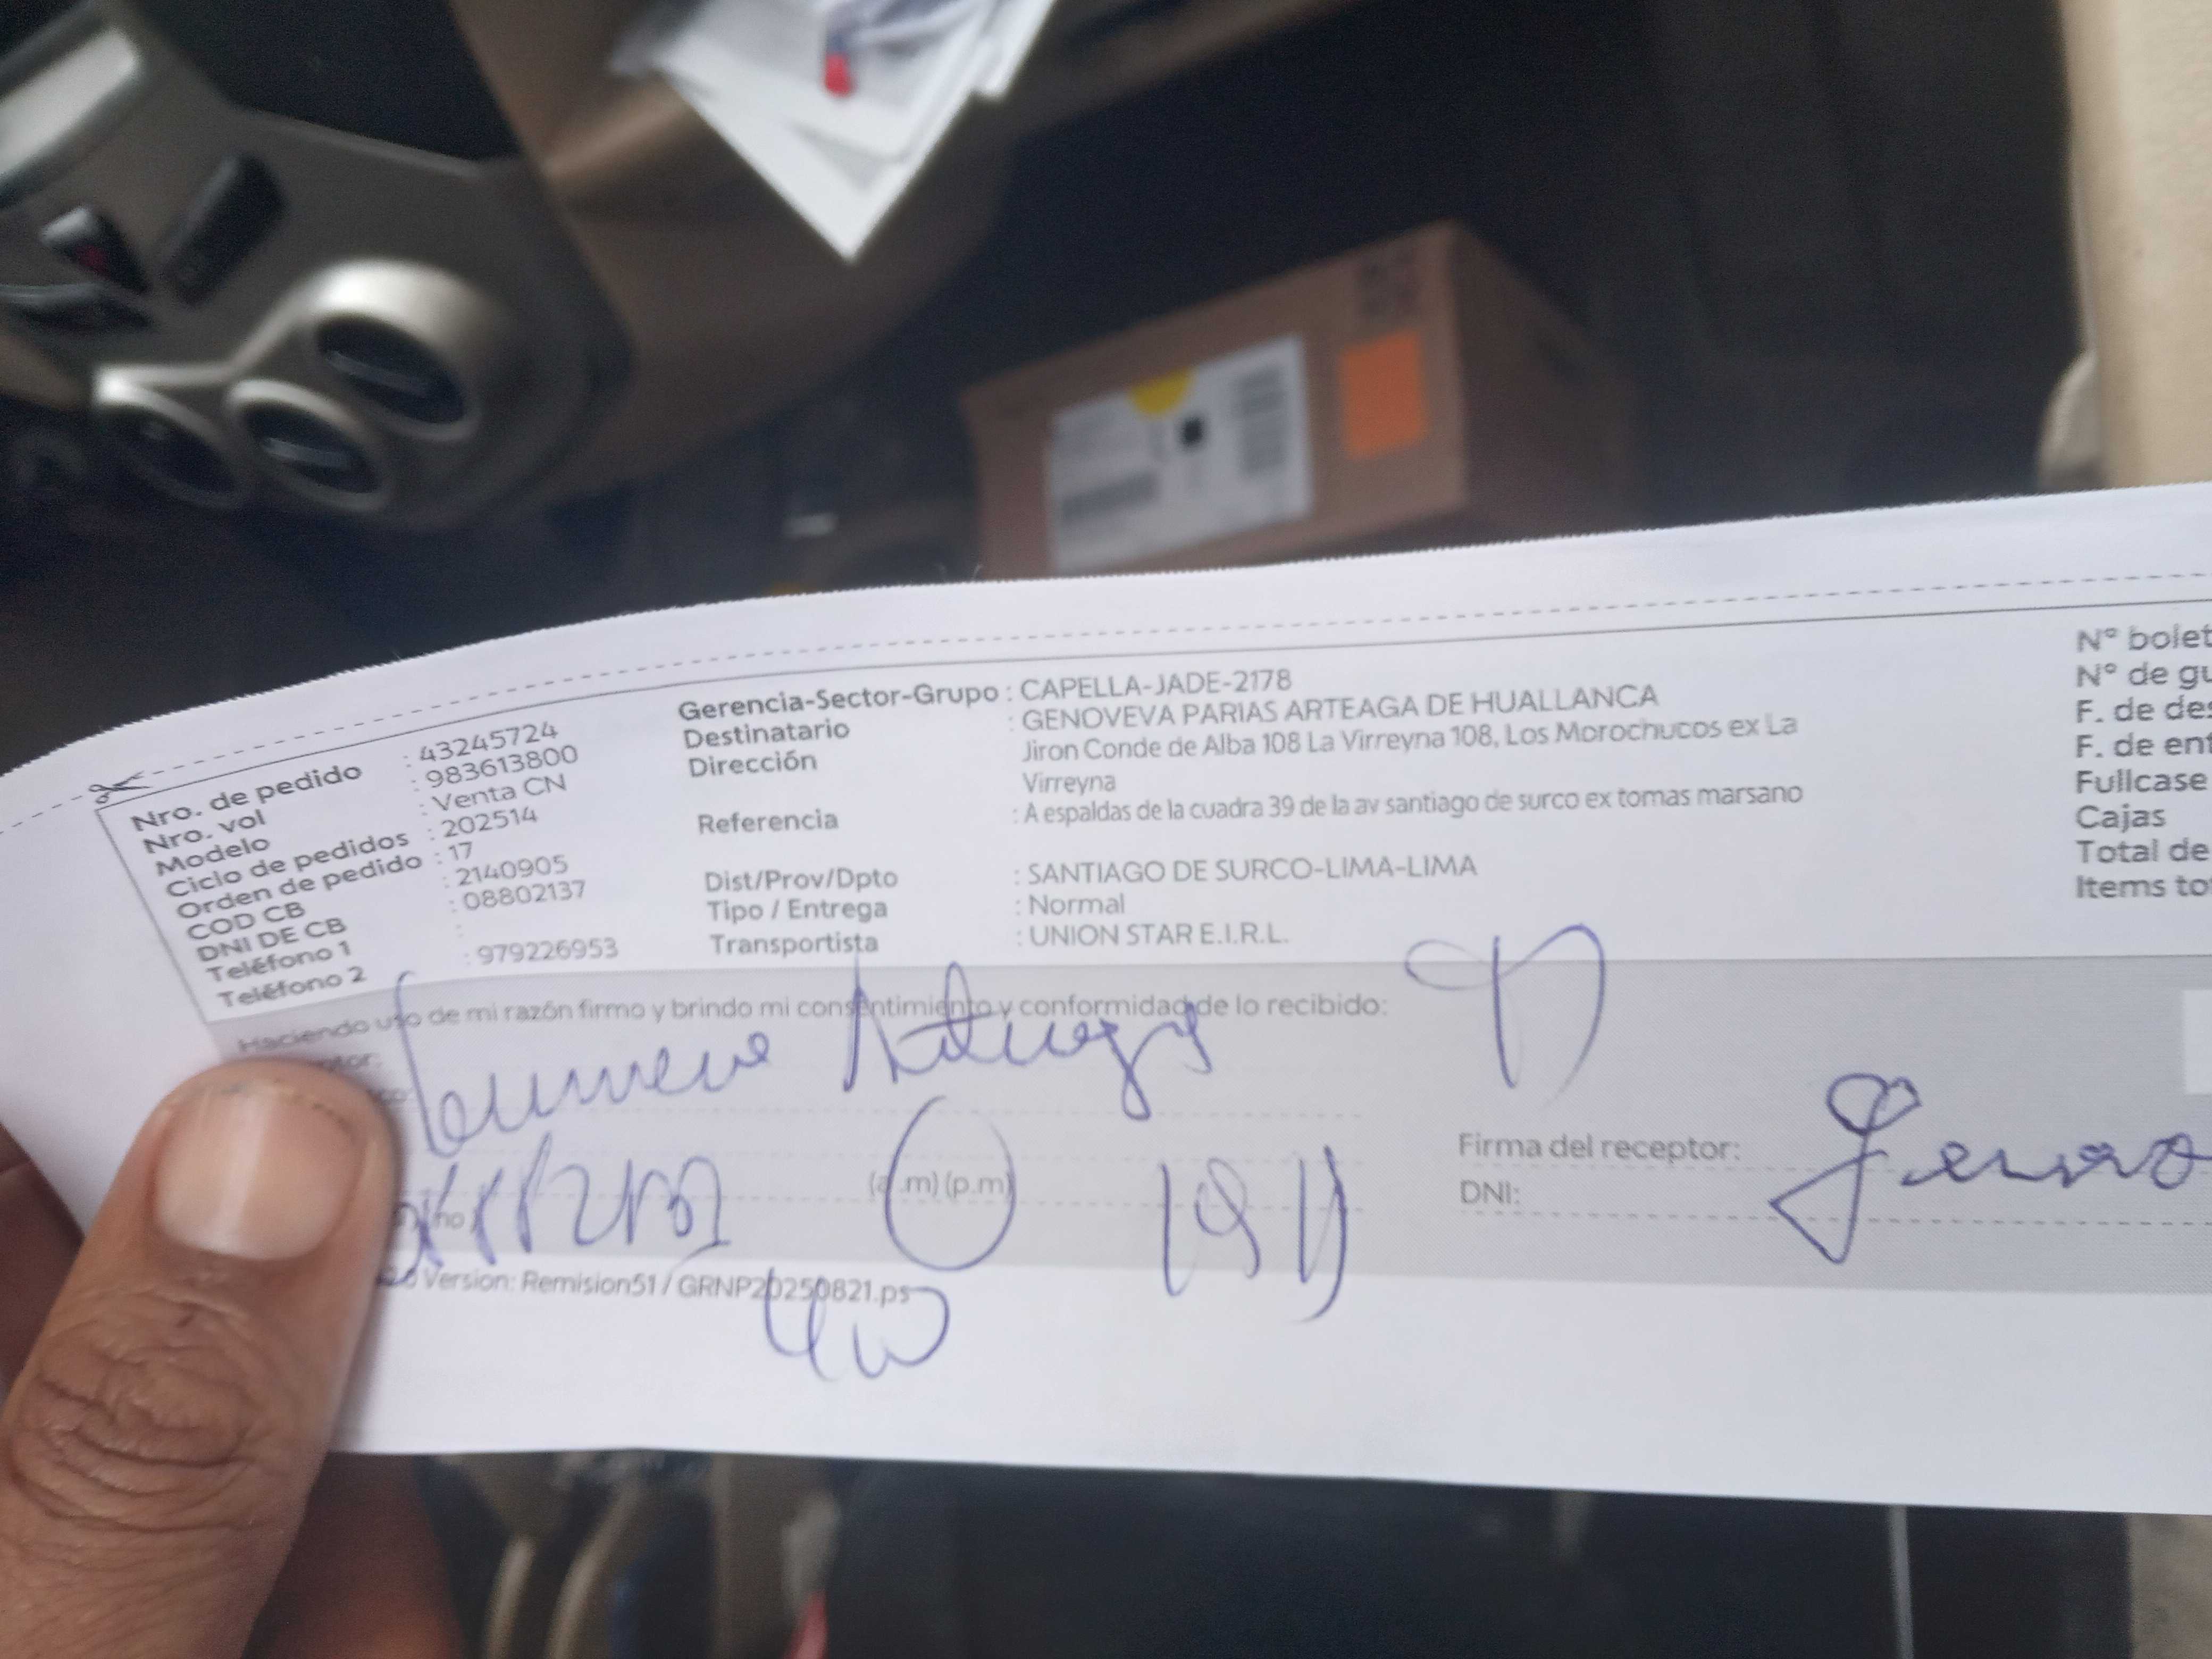 Nro. de pedido : 43245724
Nro. vol : 983613800
Modelo : Venta CN
Ciclo de pedidos : 202514
Orden de pedido : 17
COD CB : 2140905
DNI DE CB : 08802137
Teléfono 1 :
Teléfono 2 : 979226953
Gerencia-Sector-Grupo : CAPELLA-JADE-2178
Destinatario : GENOVEVA PARIAS ARTEAGA DE HUALLANCA
Dirección Jiron Conde de Alba 108 La Virreyna 108, Los Morochucos ex La
Virreyna
Referencia : A espaldas de la cuadra 39 de la av santiago de surco ex tomas marsano
Dist/Prov/Dpto : SANTIAGO DE SURCO-LIMA-LIMA
Tipo / Entrega : Normal
Transportista : UNION STAR E.I.R.L.
N° bolet
N° de gu
F. de des
F. de ent
Fullcase
Cajas
Total de
Items to
Haciendo uso de mi razón firmo y brindo mi consentimiento y conformidad de lo recibido:
(a.m) (p.m)
Firma del receptor:
DNI:
Version: Remision51 / GRNP20250821.ps